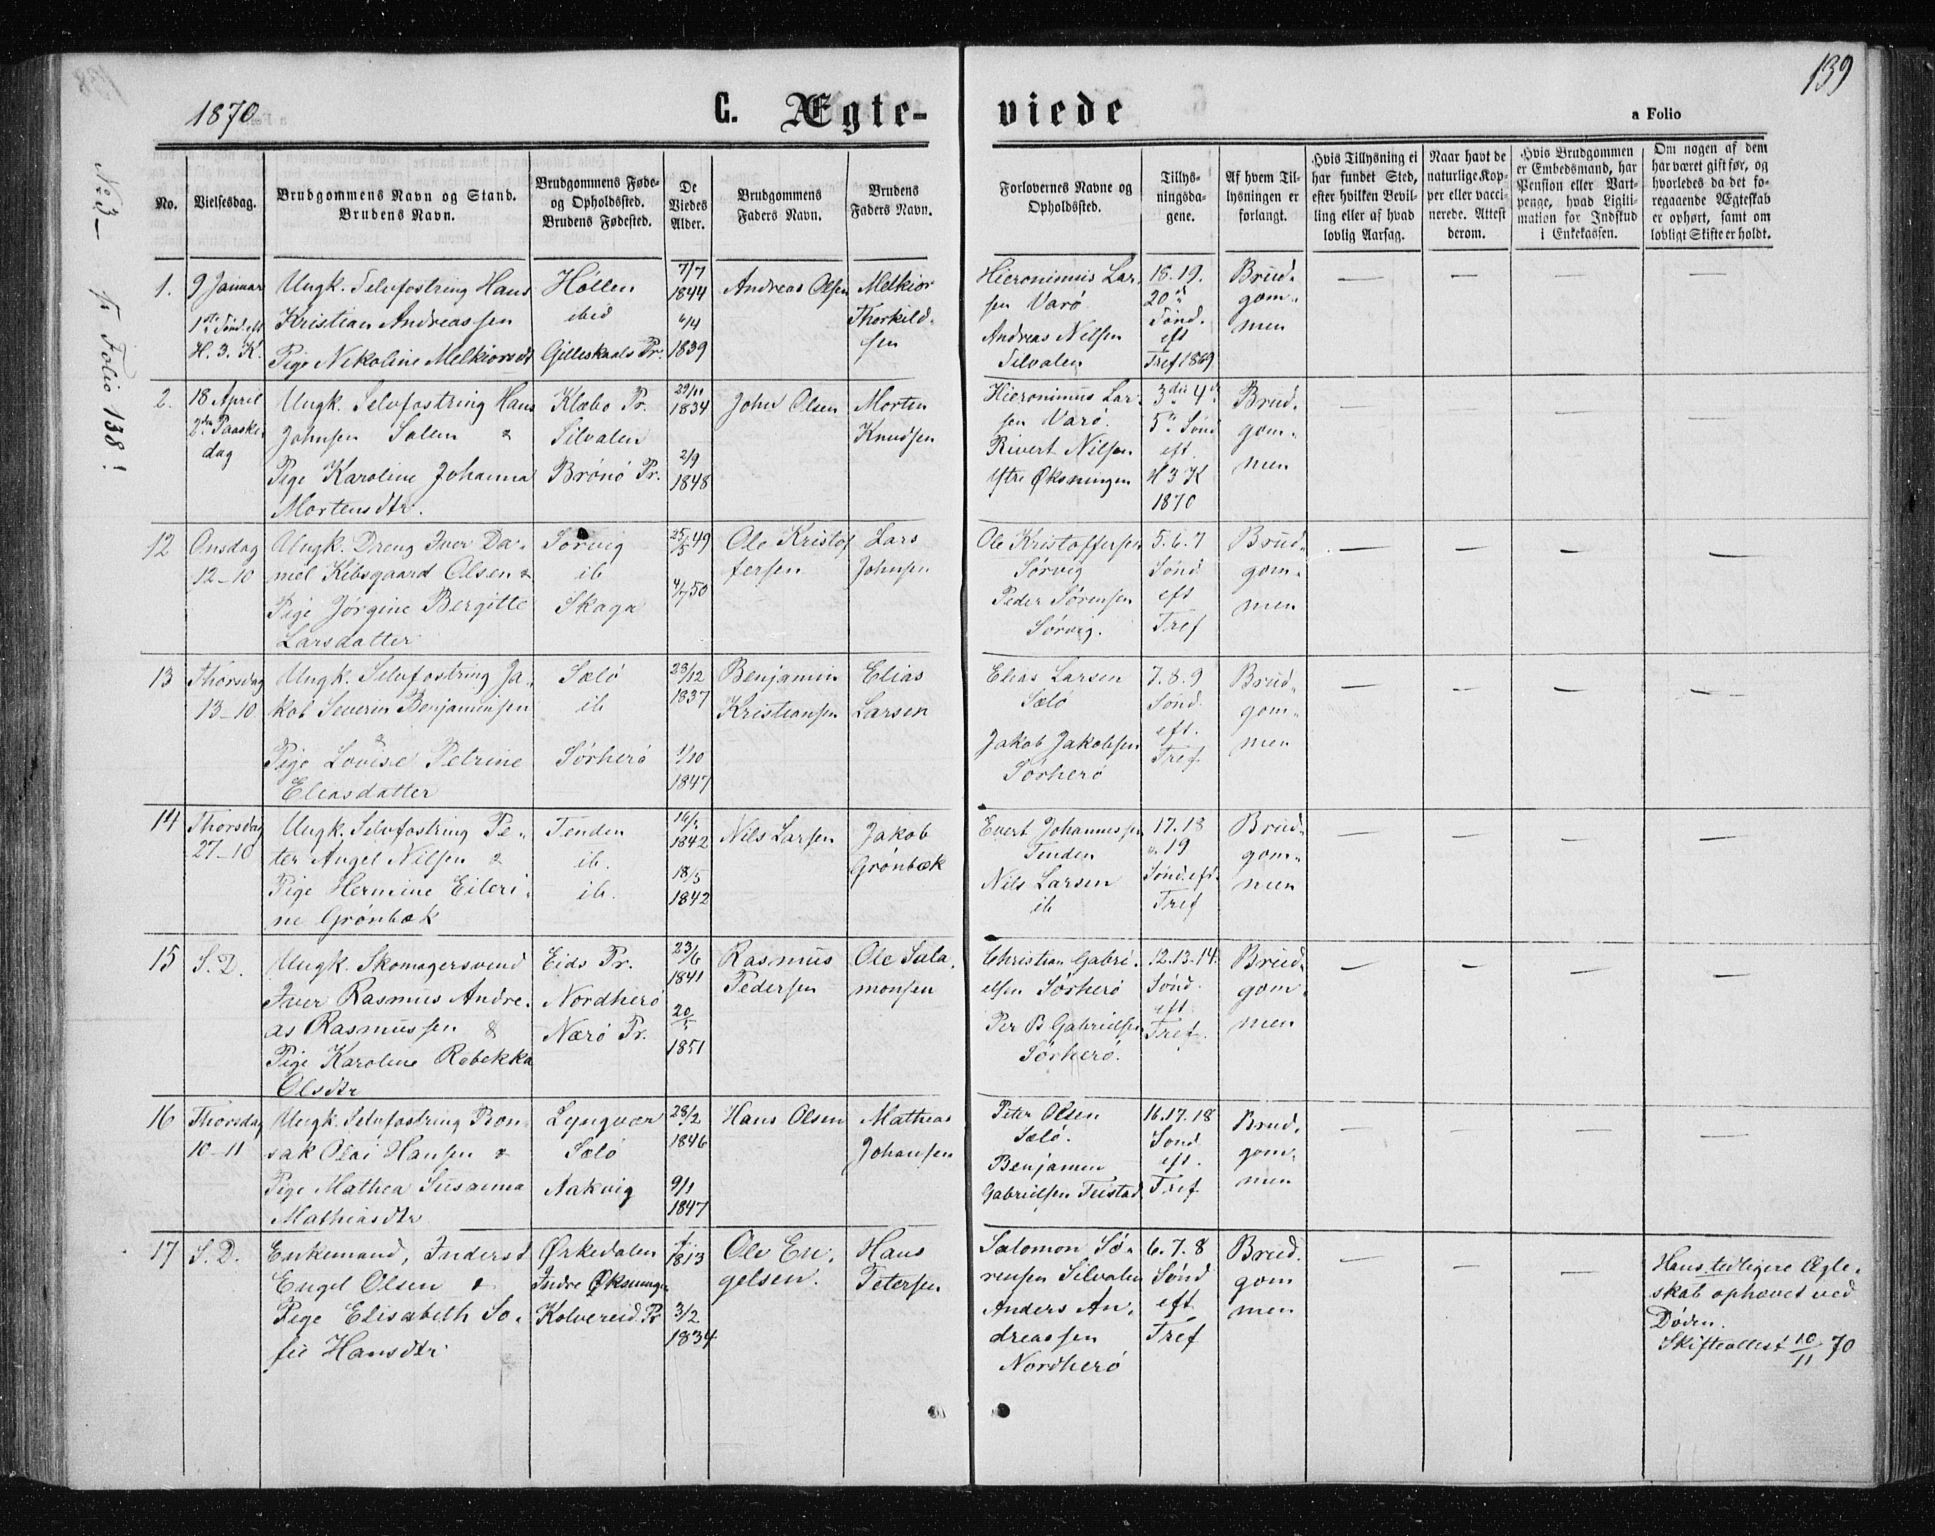 139
1870
C. Ægte-
viede
a Folio
No. 3 – fr Folio 138!
No.
Vielsesdag.
Brudgommens Navn og Stand.
Brudens Navn.
Brudgommens Føde-
og Opholdssted.
Brudens Fødested.
De
Viedes
Alder.
Brudgommens
Faders Navn.
Brudens
Faders Navn.
Forlovernes Navne og
Opholdssted.
Tillys-
ningsda-
gene.
Af hvem Til-
lysningen er
forlangt.
Hvis Tillysning ei
har fundet Sted,
efter hvilken Bevil-
ling eller af hvad
lovlig Aarsag.
Naar havt de
naturlige Kop-
per eller vacci-
nerede. Attest
derom.
Hvis Brudgommen
er Embedsmand, har
Pension eller Vart-
penge, hvad Ligiti-
mation for Indskud
i Enkekassen.
Om nogen af dem
har været gift før, og
hvorledes da det fo-
regaaende Ægteskab
er ophørt, samt om
lovligt Skifte er holdt.
1.
9 Januar
1ste Sønd. eft
H. 3. K.
Ungk. Selvfostring Hans
Kristian Andreassen
Pige Nekoline Melkiorsdt
Høllen
ibid
Gilleskaals Pr.
7/7
1844
6/4
1839
Andreas Olsen
Melkior
Thorkild-
sen
Hieronimus Lar-
sen Varø
Andreas Nilsen
Silvalen
18. 19.
20de
Sønd.
eft
Tref 1869
Brud-
gom-
men
2.
18 April
2den Paaske-
dag
Ungk. Selvfostring Hans
Johnsen Solem &
Pige Karoline Johanna
Mortensdtr.
Klæbo Pr.
Silvalen
Brønø Pr.
29/11
1834
2/9
1848
John Olsen
Morten
Knudsen
Hieronimus Lar-
sen Varø.
Rivert Nilsen
Ystre Øksningen
3die 4de
5te Sønd
eft.
H 3 K
1870
Brud-
gom-
men
12
Onsdag
12–10
Ungk. Dreng Iver Da-
niel Kibsgaard Olsen &
Pige Jørgine Bergitte
Larsdatter
Sørvig
ib
Skaga
25/5 49
4/7 50
Ole Kristof
fersen
Lars
Johnsen
Ole Kristoffersen
Sørvig
Peder Sørensen
Sørvig.
5. 6. 7
Sønd
eft
Tref
Brud-
gom-
men
13
Thorsdag
13–10
Ungk. Selvfostring Ja-
kob Severin Benjaminsen
&
Pige Lovise Petrine
Eliasdatter
Sælø
ib
Sørherø
23/12
1837
1/10
1847
Benjamin
Kristiansen
Elias
Larsen
Elias Larsen
Sælø
Jakob Jakobsen
Sørherø
7. 8. 9
Sønd.
eft.
Tref
Brud-
gom-
men
14
Thorsdag
27–10
Ungk. Selvfostring Pe-
ter Angel Nilsen &
Pige Hermine Eileri-
ne Grønbæk
Tenden
ib.
ib.
1842
18/5
1842
Nils Larsen
Jakob
Grønbæk
Evert Johannessen
Tenden
Nils Larsen
ib
17. 18
19
Sønd. eft.
Tref
Brud-
gom-
men
15
S. D.
Ungk. Skomagersvend
Iver Rasmus Andre-
as Rasmussen &
Pige Karoline Rebekka
Olsdtr
Eids Pr.
Nordherø
Nærø Pr.
23/6
1841
20/5
1851
Rasmus
Pedersen
Ole Sala-
monsen
Christian Gabri-
elsen Sørherø
Per B Gabrielsen
Sørherø.
12. 13. 14.
Sønd.
eft
Tref.
Brud-
gom-
men
16
Thorsdag
10–11
Ungk. Selvfostring Bon-
sak Olai Hansen &
Pige Mathea Susanna
Mathiasdtr
Lyngvær
Sælø
Aakvig
28/2
1846
9/1
1847
Hans Olsen
Mathias
Johansen
Peter Olsen
Sælø.
Benjamin
Gabrielsen Teistad
16. 17. 18
Sønd
eft.
Tref
Brud-
gom-
men
17
S. D.
Enkemand, Inderst
Engel Olsen &
Pige Elisabeth So-
fie Hansdtr
Ørkedalen
Indre Øksningen
Kolvereid Pr
1813
3/2
1834
Ole En-
gelsen.
Hans
Petersen
Salomon Sø-
rensen Silvalen
Anders An-
dreassen
Nordherø
6. 7. 8
Sønd
eft
Tref
Brud-
gom
men
Hans tidligere Ægte-
skab ophævet ved
Døden.
Skifteattest 10/11 70